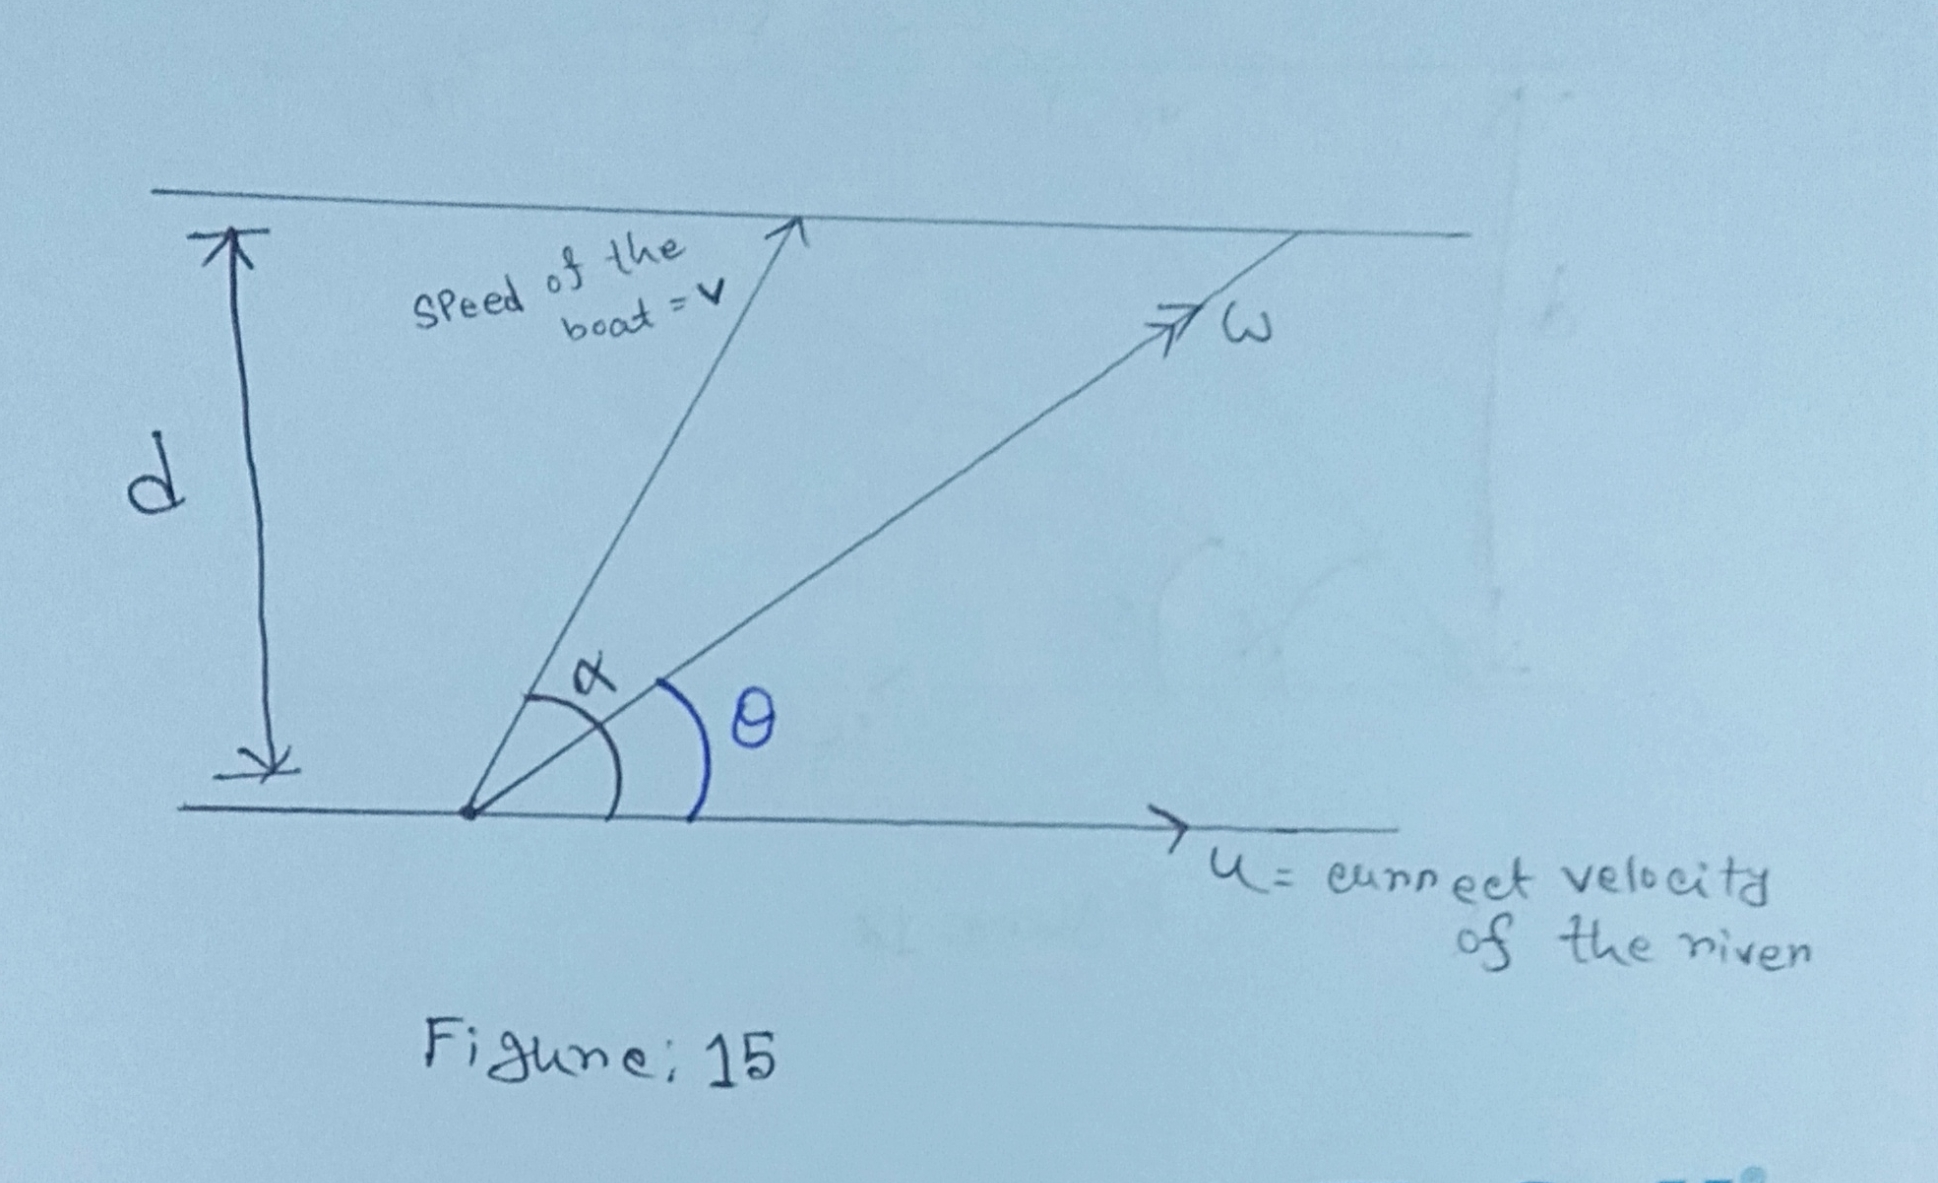 speed of the
boat = v
d
ω
α
θ
u = currect velocity
of the river
Figure: 15